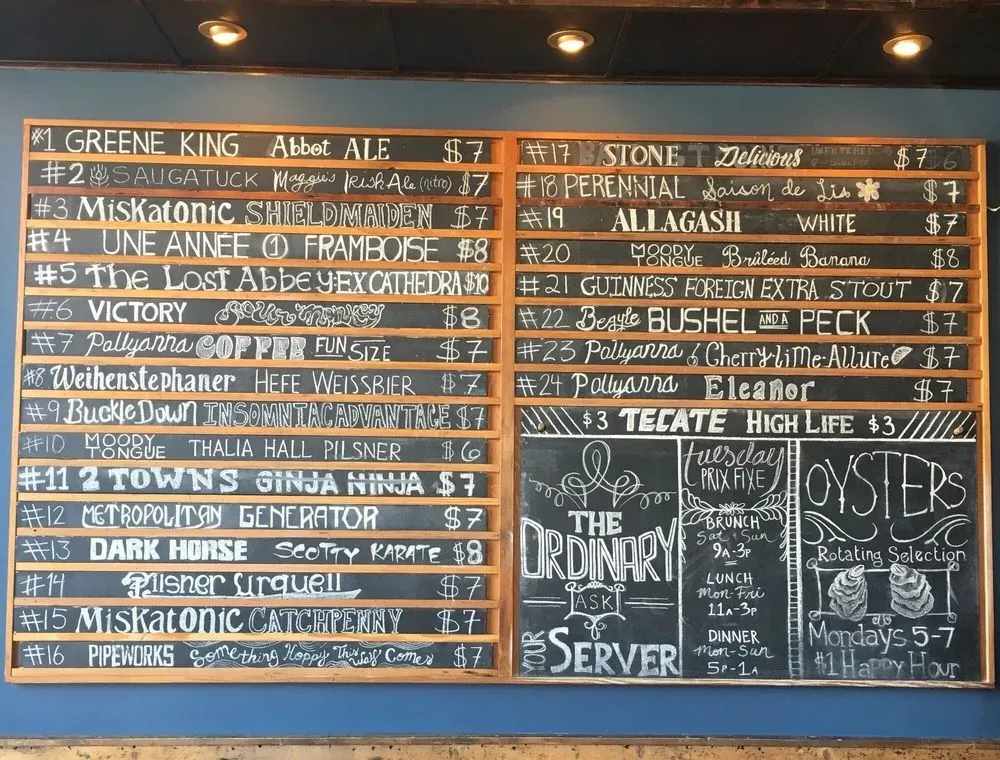 #1 GREENE KING Abbot ALE $7
#2 SAUGATUCK Maggie's Irish Ale (nitro) $7
#3 Miskatonic SHIELDMAIDEN $7
#4 UNE ANNÉE ① FRAMBOISE $8
#5 The Lost Abbey-EX CATHEDRA $10
#6 VICTORY Sour Monkey $8
#7 Pollyanna COFFEE FUN SIZE $7
#8 Weihenstephaner HEFE WEISSBIER $7
#9 Buckle Down INSOMNIAC ADVANTAGE $7
#10 MOODY TONGUE THALIA HALL PILSNER $6
#11 2 TOWNS GINJA NINJA $7
#12 METROPOLITAN GENERATOR $7
#13 DARK HORSE SCOTTY KARATE $8
#14 Pilsner Urquell $7
#15 Miskatonic CATCHPENNY $7
#16 PIPEWORKS Something Hoppy This Way Comes $7
#17 STONE Delicious UNFILTERED $7
#18 PERENNIAL Saison de Lis $7
#19 ALLAGASH WHITE $7
#20 MOODY TONGUE Brûléed Banana $8
#21 GUINNESS FOREIGN EXTRA STOUT $7
#22 Begyle BUSHEL AND A PECK $7
#23 Pollyanna Cherry-lime-Allure $7
#24 Pollyanna Eleanor $7
$3 TECATE HIGH LIFE $3
THE
ORDINARY
ASK
YOUR
SERVER
Tuesday
PRIX FIXE
BRUNCH
Sat + Sun
9A-3P
LUNCH
Mon-Fri
11A-3P
DINNER
Mon-Sun
5P-1A
OYSTERS
Rotating Selection
Mondays 5-7
$1 Happy Hour